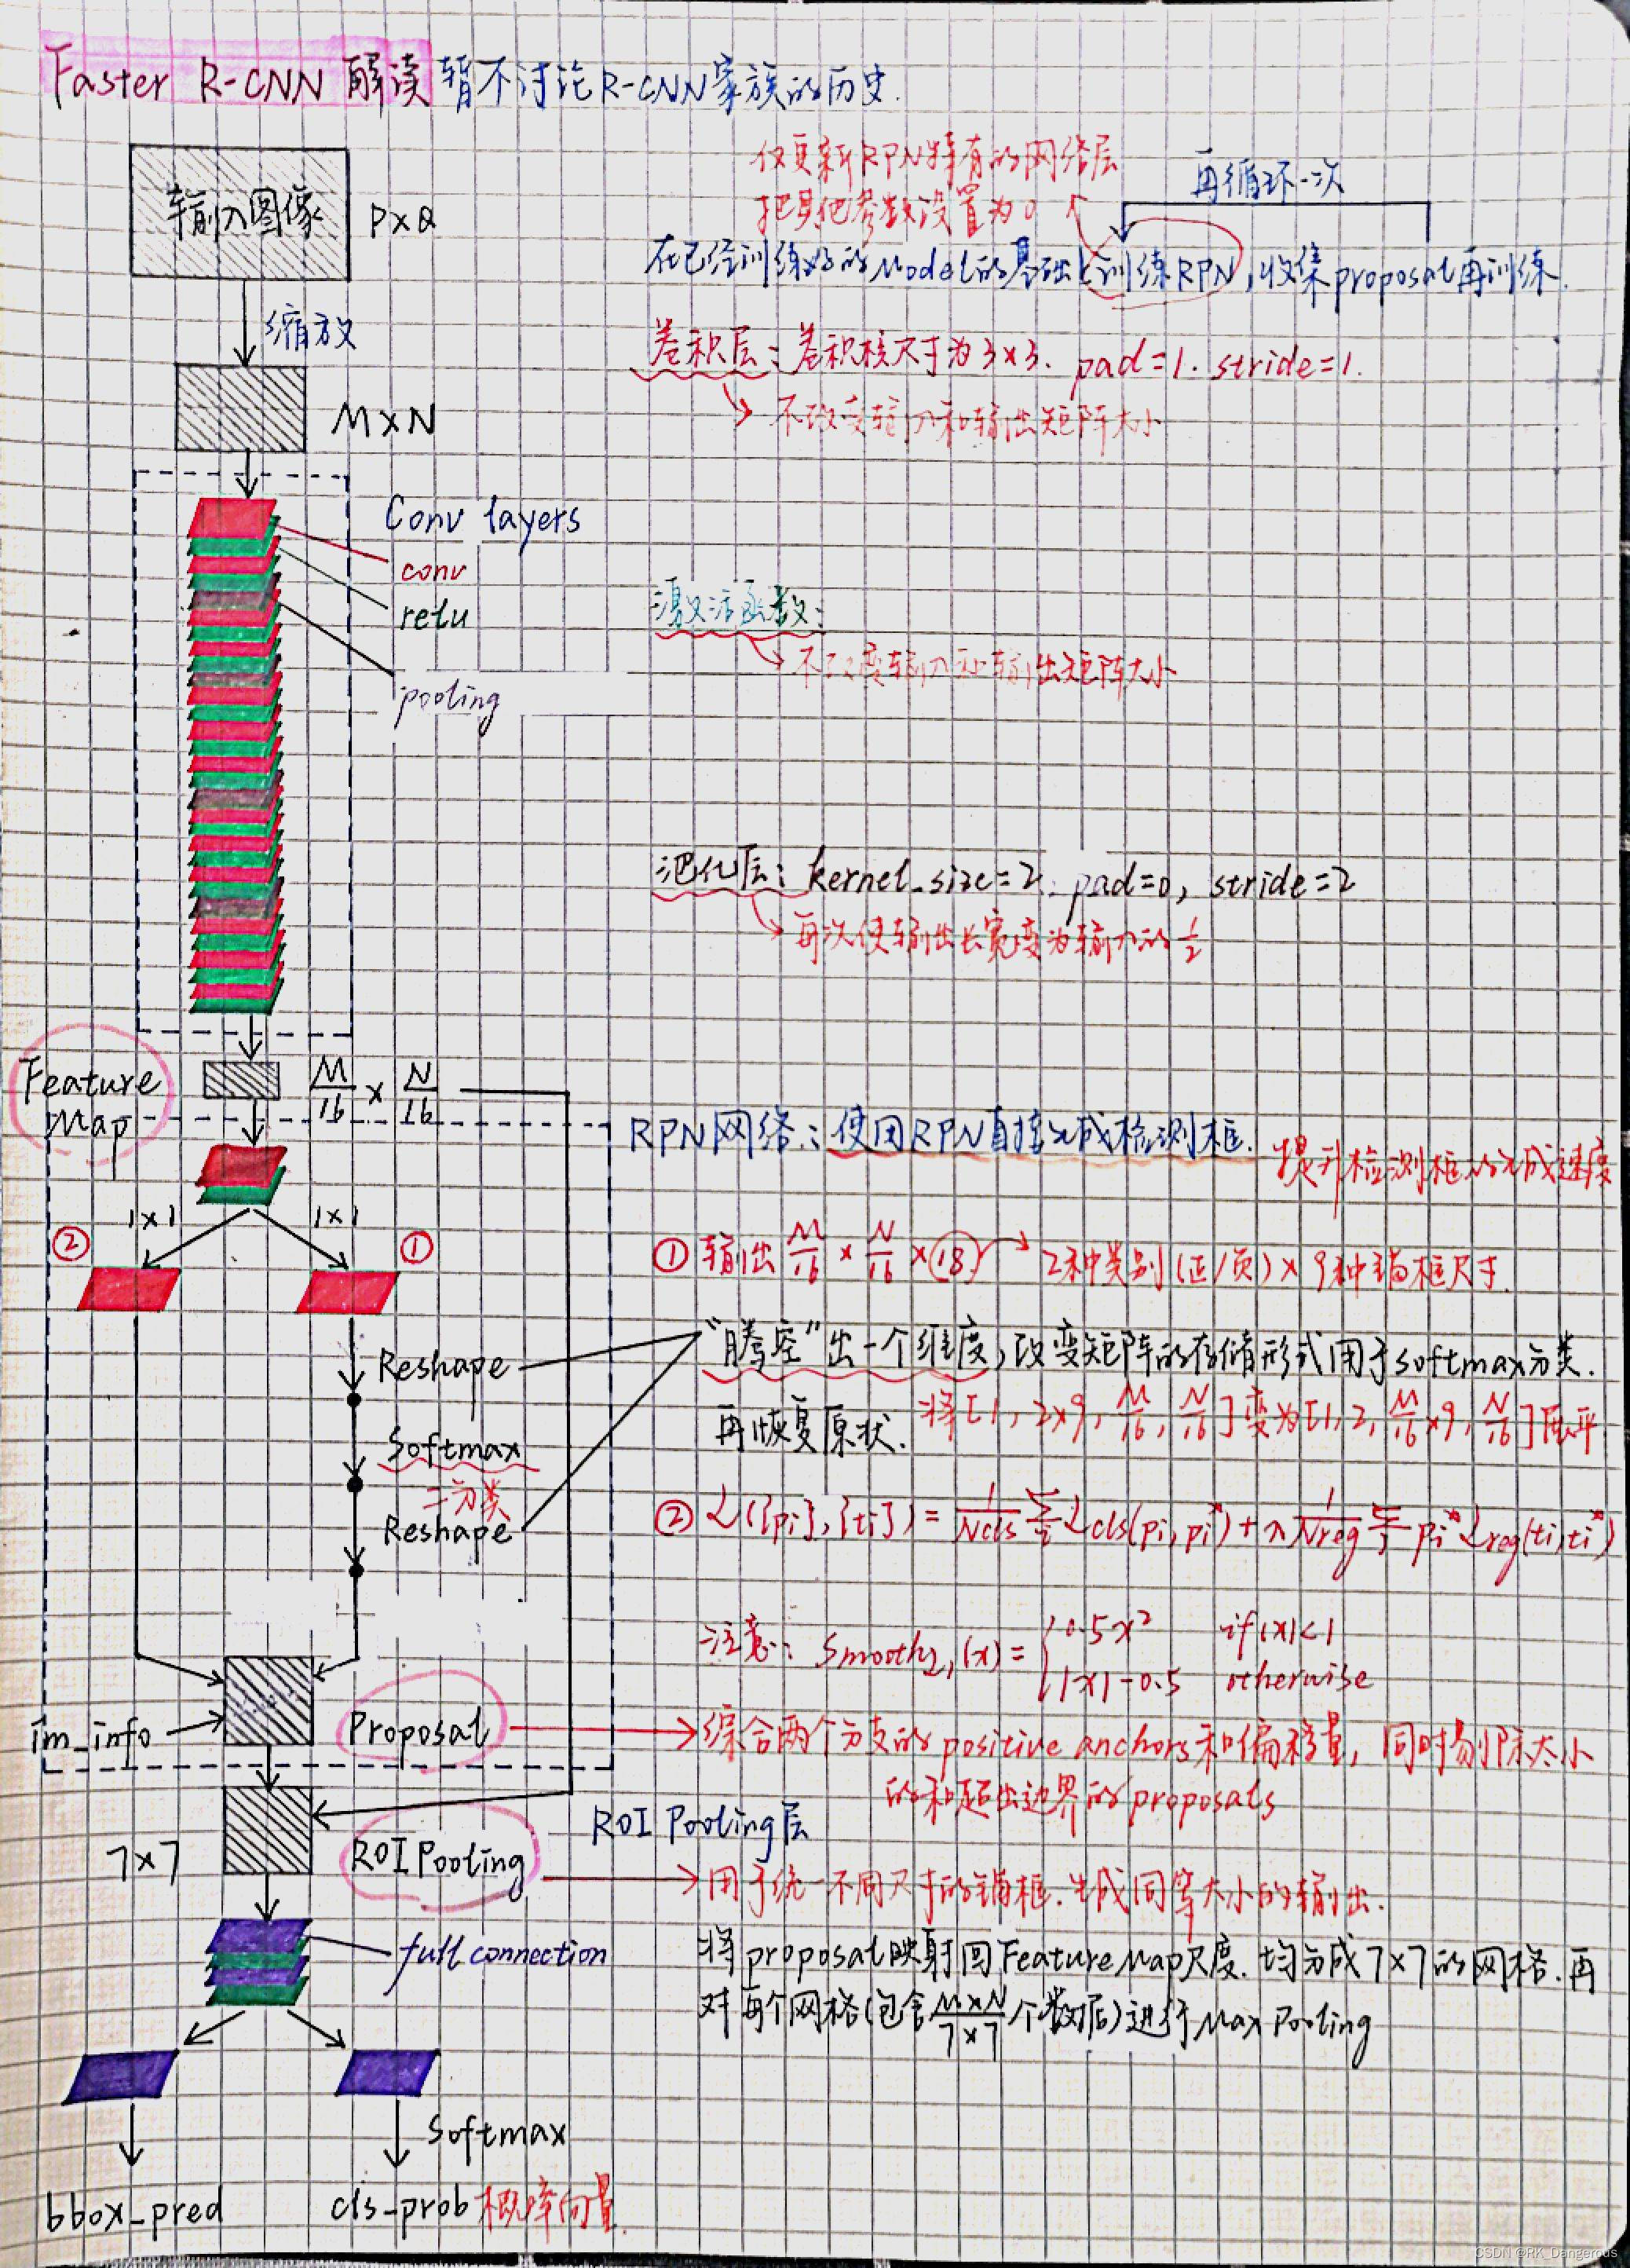 Faster R-CNN 解读 暂不讨论R-CNN家族的历史.
输入图像
P×Q
仅更新RPN特有的网络层
把其他参数设置为0
再循环一次
在已经训练好的Model的基础上训练RPN,收集proposal再训练.
缩放
M×N
卷积层:卷积核尺寸为3×3、pad=1. stride=1.
不改变输入和输出矩阵大小
Conv layers
conv
relu
pooling
激活函数:
不改变输入和输出矩阵大小
池化层: kernel_size=2. pad=0, stride=2
再次使输出长宽变为输入的1/2
Feature
Map
M/16 × N/16
RPN网络:使用RPN直接生成检测框.
提升检测框的生成速度
1×1
1×1
②
①
① 输出 M/16 × N/16 ×18 2种类别(正/负)×9种锚框尺寸.
Reshape
"腾空"出一个维度,改变矩阵的存储形式用于softmax分类.
再恢复原状. 将[1, 2×9, M/16, N/16]变为[1, 2, M/16×9, N/16]展平
Softmax
二分类
Reshape
② L({pi},{ti}) = 1/Ncls Σi Lcls(pi,pi*) + λ 1/Nreg Σi pi* Lreg(ti,ti*)
注意: SmoothL1(x)= { 0.5x² if |x|<1
|x|-0.5 otherwise
im_info
Proposal
综合两个分支的positive anchors和偏移量, 同时剔除太小
的和超出边界的proposals
7×7
ROI Pooling
ROI Pooling层
用于统一不同尺寸的锚框.生成同等大小的输出.
full connection
将proposal映射回Feature Map尺度.均分成7×7的网格.再
对每个网格(包含 M×N/7×7 个数据)进行Max Pooling
Softmax
bbox_pred
cls_prob 概率向量
CSDN @RK_Dangerous